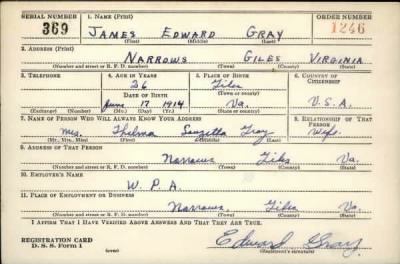 SERIAL NUMBER 1. NAME (Print) ORDER NUMBER
369 JAMES EDWARD GRAY 1246
(First) (Middle) (Last)
2. ADDRESS (Print)
NARROWS GILES VIRGINIA
(Number and street or R. F. D. number) (Town) (County) (State)
3. TELEPHONE 4. AGE IN YEARS 5. PLACE OF BIRTH 6. COUNTRY OF CITIZENSHIP
26 Giles
DATE OF BIRTH (Town or county)
June 17 1914 Va. U.S.A.
(Exchange) (Number) (Mo.) (Day) (Yr.) (State or country)
7. NAME OF PERSON WHO WILL ALWAYS KNOW YOUR ADDRESS 8. RELATIONSHIP OF THAT PERSON
Mrs. Thelma Gray Wife
(Mr., Mrs., Miss) (First) (Middle) (Last)
9. ADDRESS OF THAT PERSON
Narrows Giles Va.
(Number and street or R. F. D. number) (Town) (County) (State)
10. EMPLOYER'S NAME
W. P. A.
11. PLACE OF EMPLOYMENT OR BUSINESS
Narrows Giles Va.
(Number and street or R. F. D. number) (Town) (County) (State)
I AFFIRM THAT I HAVE VERIFIED ABOVE ANSWERS AND THAT THEY ARE TRUE.
REGISTRATION CARD
D. S. S. Form 1 (over) Edward Gray
(Registrant's signature)